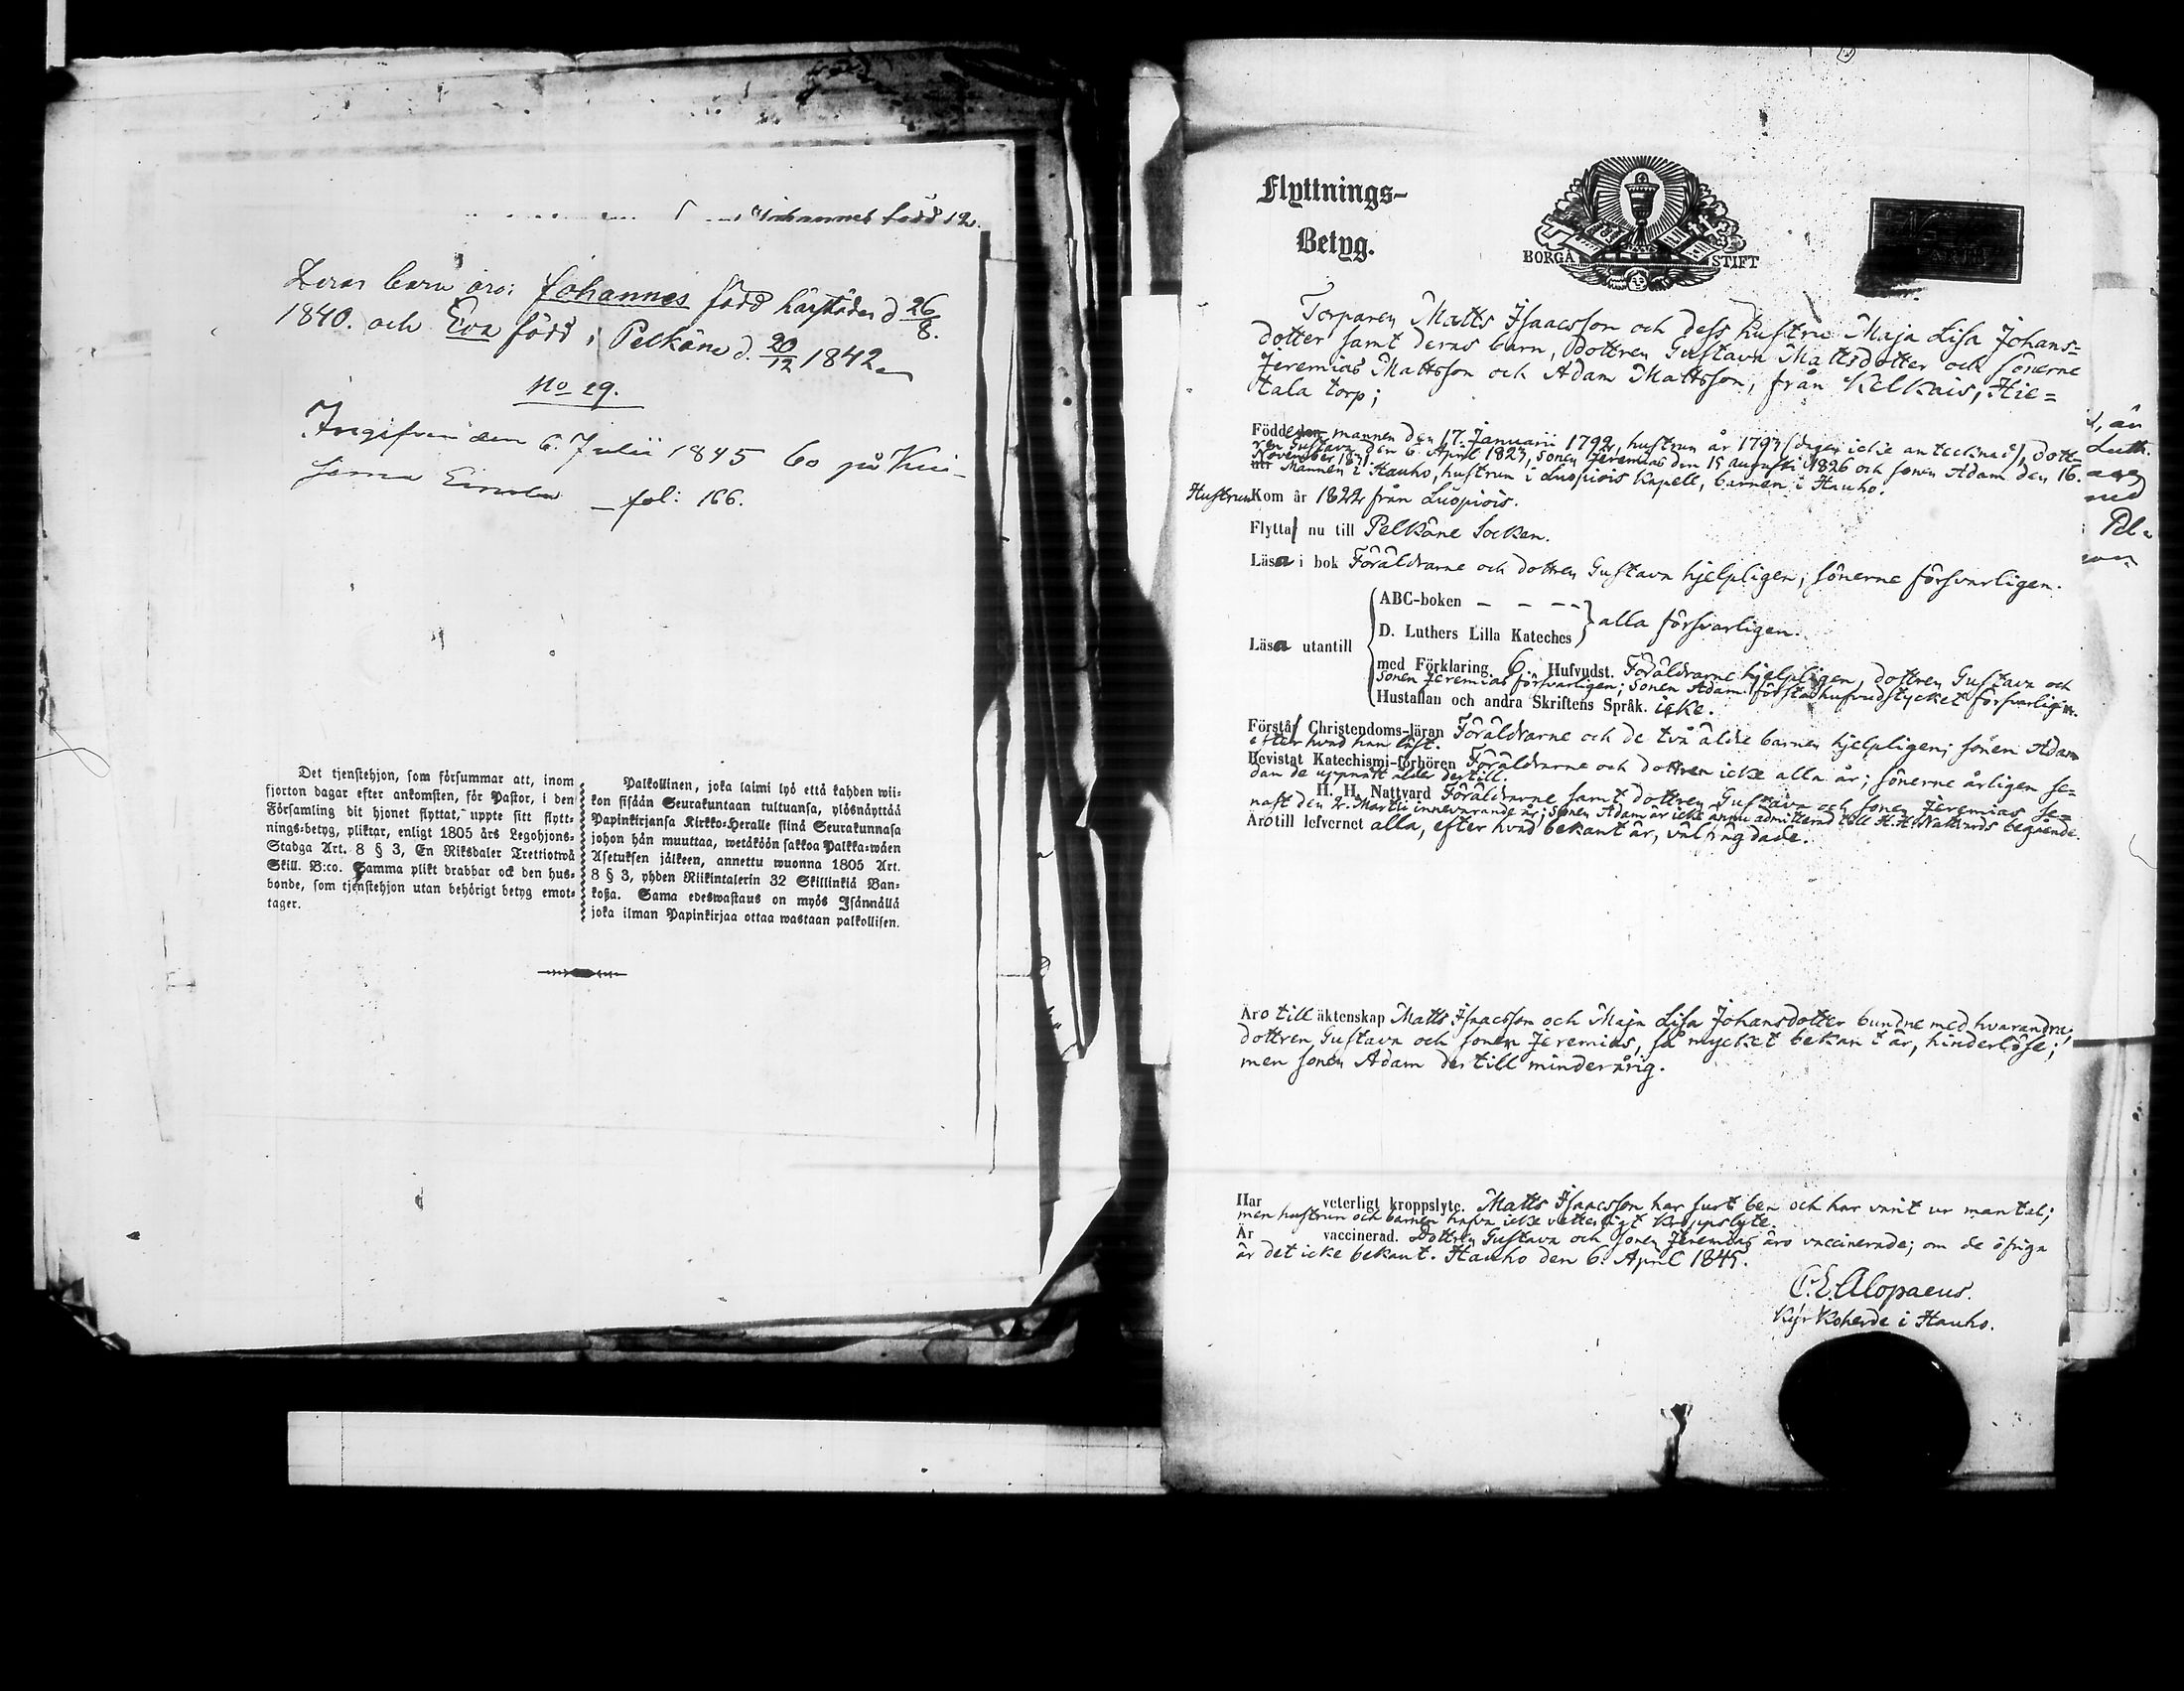 Johannes född 12.
Deras barn äro: Johannes född härstädes d 26/8.
1840. och Eva född i Pelkäne d. 20/12 1842
No 29.
den 6. Julii 1845 bo på Kui-
fol: 166.
Det tjenstehjon, som försummar att, inom
fjorton dagar efter ankomsten, för Pastor, i den
Församling dit hjonet flyttat, uppte sitt flytt-
nings-betyg, pliktar, enligt 1805 års Legohjons-
Stadga Art. 8 § 3, En Riksdaler Trettiotwå
Skill. B:co. Samma plikt drabbar ock den hus-
bonde, som tjenstehjon utan behörigt betyg emot-
tager.
Palkollinen, joka laimi lyö että kahden wii-
kon sisään Seurakuntaan tultuansa, ylösnäyttää
Papinkirjansa Kirkko-Heralle siinä Seurakunnasa
johon hän muuttaa, wetäköön sakkoa Palkka-wäen
Asetuksen jälkeen, annettu wuonna 1805 Art.
8 § 3, yhden Riikintalerin 32 Skillinkiä Ban-
kosa. Sama edeswastaus on myös Isännällä
joka ilman Papinkirjaa ottaa wastaan palkollisen.
Flyttnings-
Betyg.
BORGÅ STIFT
Torparen Matts Isaacsson och dess hustru Maja Lisa Johans=
dotter samt deras barn, dottren Gustava Mattsdotter och sönerne
Jeremias Mattsson och Adam Mattsson, från Kelkais, Hie=
tala torp;
Födde den mannen den 17. Januarii 1792, hustrun år 1797 (dagen icke antecknad), dott=
ren Gustava den 6. April 1823, sonen Jeremias den 15 augusti 1826 och sonen Adam den 16.
November
Mannen i Hauho, hustrun i Luopiois Kapell, barnen i Hauho.
Hustrun Kom år 1822 från Luopiois.
Flytta nu till Pelkäne Socken.
Läsa i bok Föräldrarne och dottren Gustava hjelpligen; sönerne försvarligen.
ABC-boken
alla försvarligen.
D. Luthers Lilla Kateches
Läsa utantill
med Förklaring 6. Hufvudst. Föräldrarne hjelpligen, dottren Gustava och
sonen Jeremias försvarligen; sonen Adam första hufvudstycket försvarligen.
Hustaflan och andra Skriftens Språk. icke.
Förstå Christendoms-läran Föräldrarne och de två äldre barnen hjelpligen; sonen Adam
efter hvad han läst.
Bevistat Katechismi-förhören Föräldrarne och dottren icke alla år; sönerne årligen se=
dan de uppnått ålder dertill.
H. H. Nattvard Föräldrarne samt dottren Gustava och sonen Jeremias se=
nast den 2. Martii innevarande år; sonen Adam är icke ännu admitterad till H. H. Nattvards begående.
Äro till lefvernet alla, efter hvad bekant är, välfrägdade.
Äro till äktenskap Matts Isaacsson och Maja Lisa Johansdotter bundne med hvarandra,
dottren Gustava och sonen Jeremias, så mycket bekant är, hinderlöse;
men sonen Adam dertill minderårig.
Har veterligt kroppslyte. Matts Isaacsson har surt ben och har varit ur mantal;
men hustrun och barnen hafva icke vetterligt kroppslyte.
Är vaccinerad. Dottren Gustava och sonen Jeremias äro vaccinerade; om de öfriga
är det icke bekant. Hauho den 6. April 1845.
C. E. Alopaeus.
Kyrkoherde i Hauho.